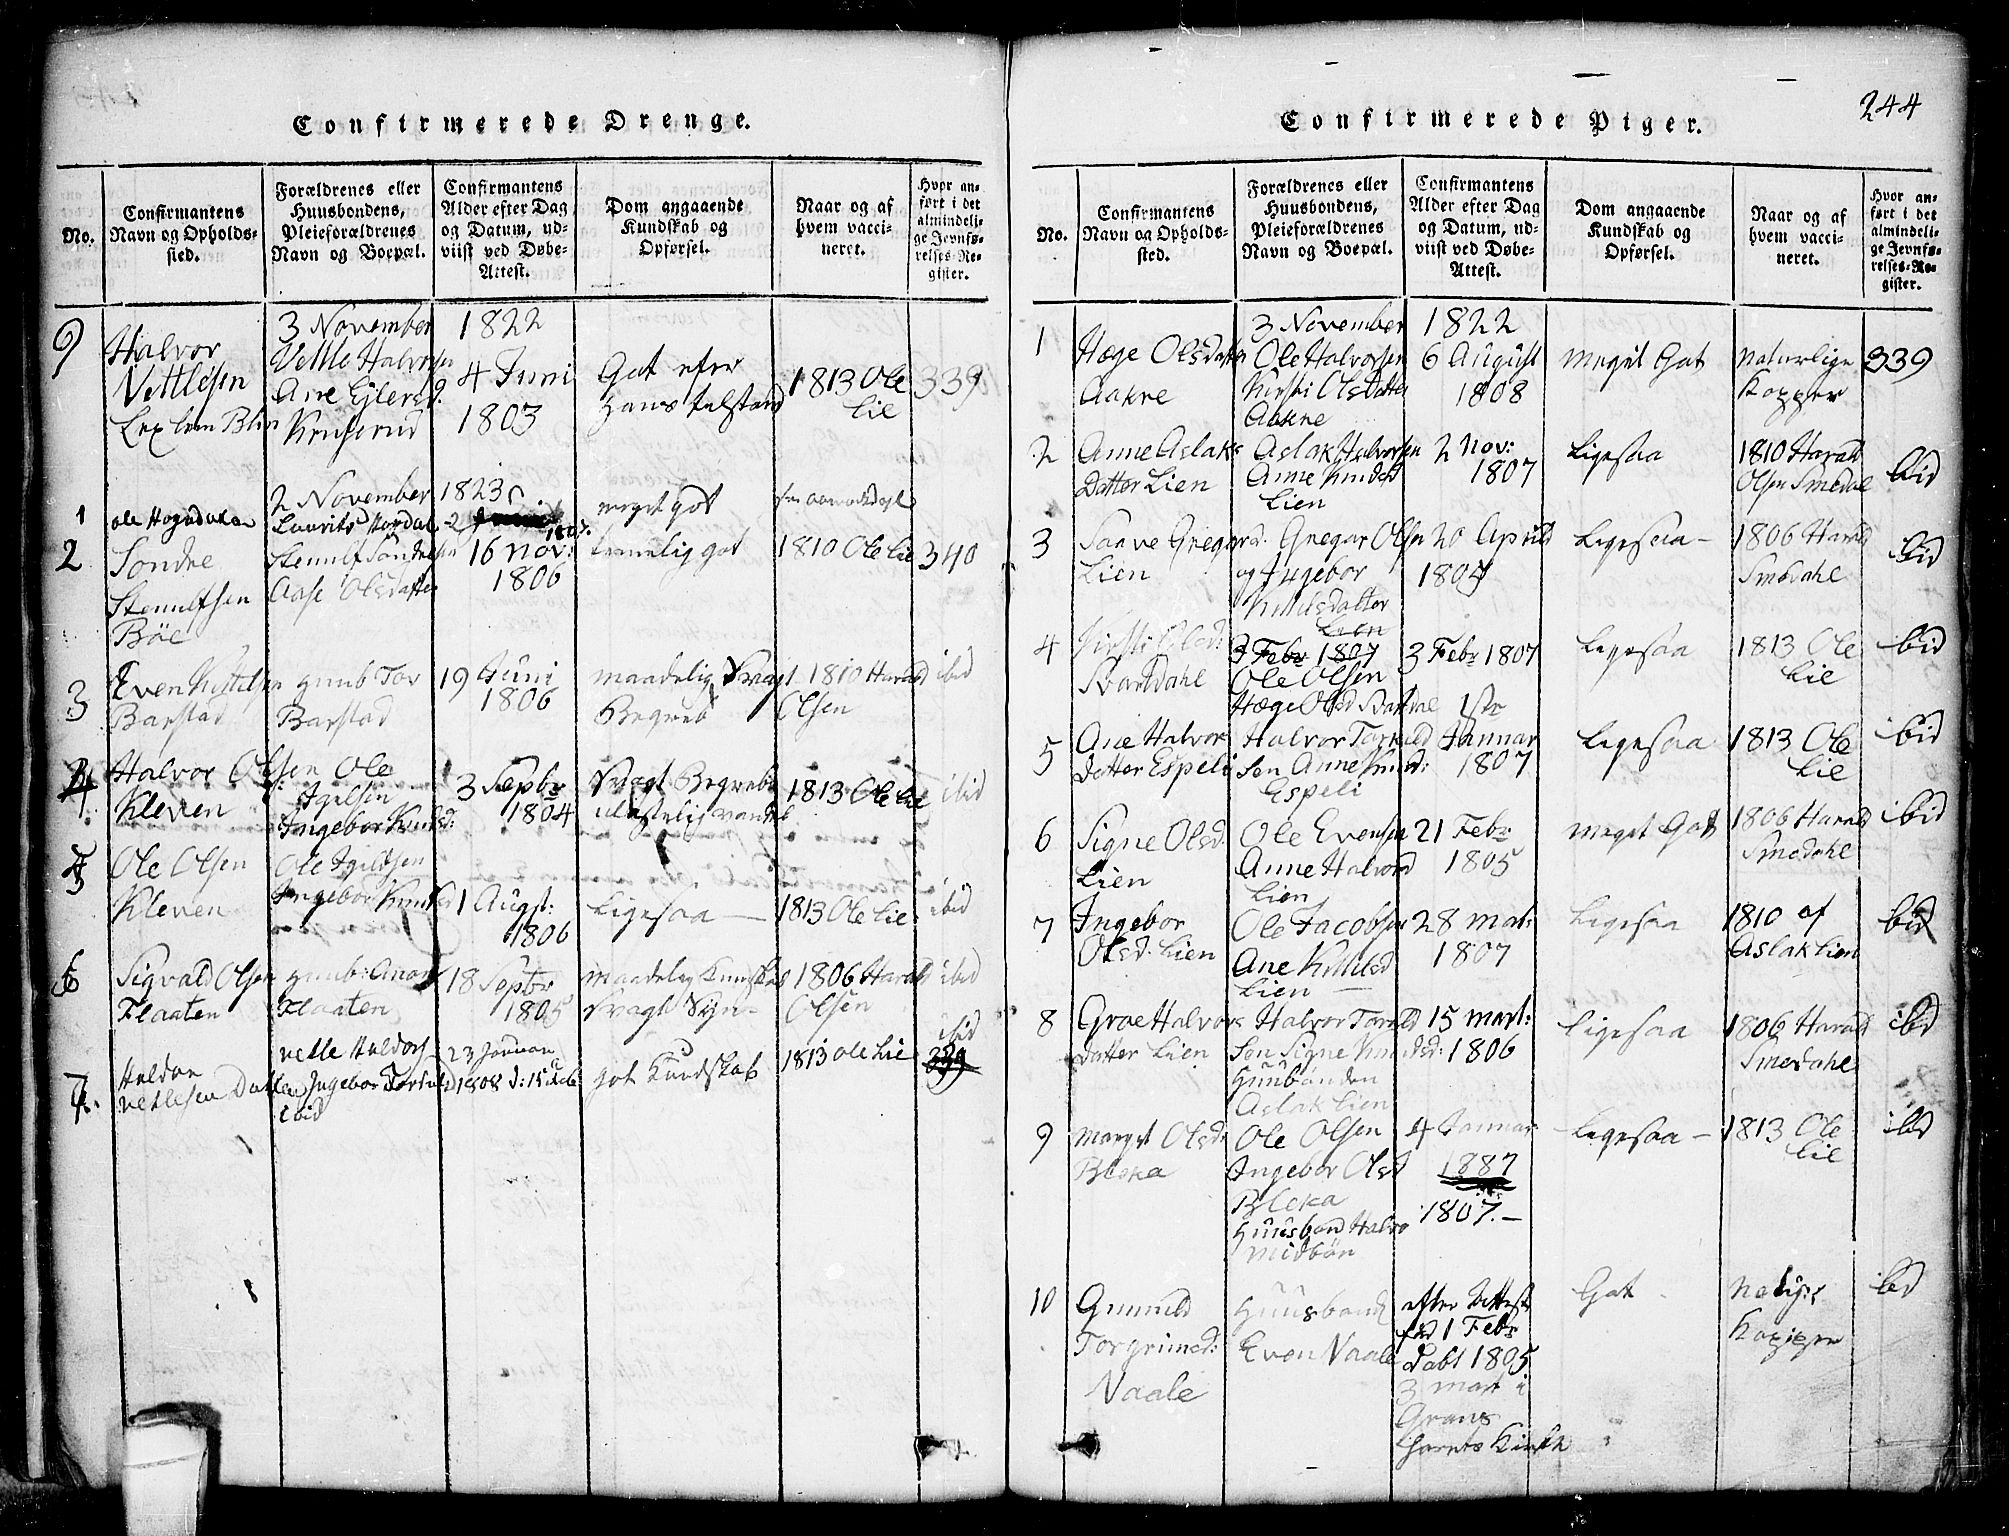 244
Confirmerede Drenge.
No.
Confirmantens
Navn og Opholds-
sted.
Forældrenes eller
Huusbondens,
Pleieforældrenes
Navn og Boepæl.
Confirmantens
Alder efter Dag
og Datum, ud-
viist ved Døbe-
Attest.
Dom angaaende
Kundskab og
Opførsel.
Naar og af
hvem vacci-
neret.
Hvor an-
ført i det
almindeli-
ge Jevnfø-
relses-Re-
gister.
3 November 1822
9
Halvor
Vettlesen
Vettle Halvorsen
Ane Ejlersd.
4 Juni
1803
Got efter
hans
1813 Ole
Lie
339
2 November 1823
1
Ole
Laurits
2
1807
meget got
2
Søndre
Stenulfsen
Böe
Stenulf Søndresen
Aase Olsdatter
16 Nov:
1806
temmelig got
1810 Ole Lie
340
3
Even Kittilsen
Barstad
Huusb Tov
Barstad
19 Juni
1806
maadelig svagt
Begreb
1810 Harald
Olsen
ibid
4
Halvor Olsen
Kleven
Ole
Igilsen
Ingebor Knudsd:
3 Septbr
1804
Svagt Begreb
ulastelig vandel
1813 Ole Lie
ibid
5
Ole Olsen
Kleven
Ole Igilsen
Ingebor Knudsd
1 Augst:
1806
Ligesaa —
1813 Ole Lie
ibid
6
Sigvald Olsen
Flaaten
Huusb: Anon
Flaaten
18 Septbr
1805
maadelig Kundskab
svagt Syn -
1806 Harald
Olsen
ibid
7.
Haldor
Vetlesen Dalen
Vetle Haldors
Ingebor Torsd
ibid
23 Januar
1808
got Kundskab
1813 Ole Lie
ibid
Confirmerede Piger.
No.
Confirmantens
Navn og Opholds-
sted.
Forældrenes eller
Huusbondens,
Pleieforældrenes
Navn og Boepæl.
Confirmantens
Alder efter Dag
og Datum, ud-
viist ved Døbe-
Attest.
Dom angaaende
Kundskab og
Opførsel.
Naar og af
hvem vacci-
neret.
Hvor an-
ført i det
almindeli-
ge Jevnfø-
relses-Re-
gister.
3 November 1822
1
Hæge Olsdatter
Aakre
Ole Halvorsen
Kirsti Olsdatter
Aakre
6 August
1808
Meget Got
Naturlige
Kopper
339
2
Anne Aslaks
Datter Lien
Aslak Halvorsen
Anne Knudsd
Lien
2 Nov:
1807
Ligesaa
1810 Harald
Olsen Smedal
ibid
3
Saave Gregarsd:
Lien
Gregar Olsen
og Ingebor
Knudsdatter
Lien
20 April
Ligesaa —
1806 Harald
Smedahl
ibid
4
Kirsti Olsd:
Svartdahl
3 Febr 1807
Ole Olsen
Hæge Olsd
3 Febr 1807
Ligesaa
1813 Ole
Lie
ibid
5
Ane Halvor
Datter Espeli
Halvor Tarald
Sen Anne Knudsd:
Espeli
1ste
Januar
1807
Ligesaa
1813 Ole
Lie
ibid
6
Signe Olsd:
Lien
Ole Evensen
Anne Halvord
Lien
21 Febr
1805
Meget Got
1806 Harald
Smedahl
ibid
7
Ingebor
Olsd: Lien
Ole Jacobsen
Ane Knudsd
Lien
28 Mai:
1807
Ligesaa
1810 af
Aslak Lien
ibid
8
Groe Halvors
Datter Lien
Halvor Tarald
Sen Signe Knudsd:
Huusbonden
Aslak Lien
15 Mart:
1806
Ligesaa
1806 Harald
Smedahl
ibid
9
Marget Olsd:
Bleka
Ole Olsen
Ingebor Olsd
Bleka
Huusbond Halvor
Midbøn
4 Januar
1887
1807. —
Ligesaa —
1813 Ole
Lie
ibid
10
Gunuld
Torgrimsd:
Naale
Huusbond
Even Naale
efter Attest
fød 1 Febr
Døbt 1805
3 Mart i
Grans
Kirke
Got
Kopper
ibid